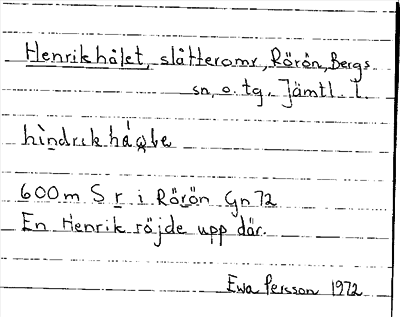 Henrikhålet, slåtteromr, Rörön, Bergs
sn, o. tg. Jämtl. l.
600 m S r i Rörön Gn 72
En Henrik röjde upp där.
Ewa Persson 1972